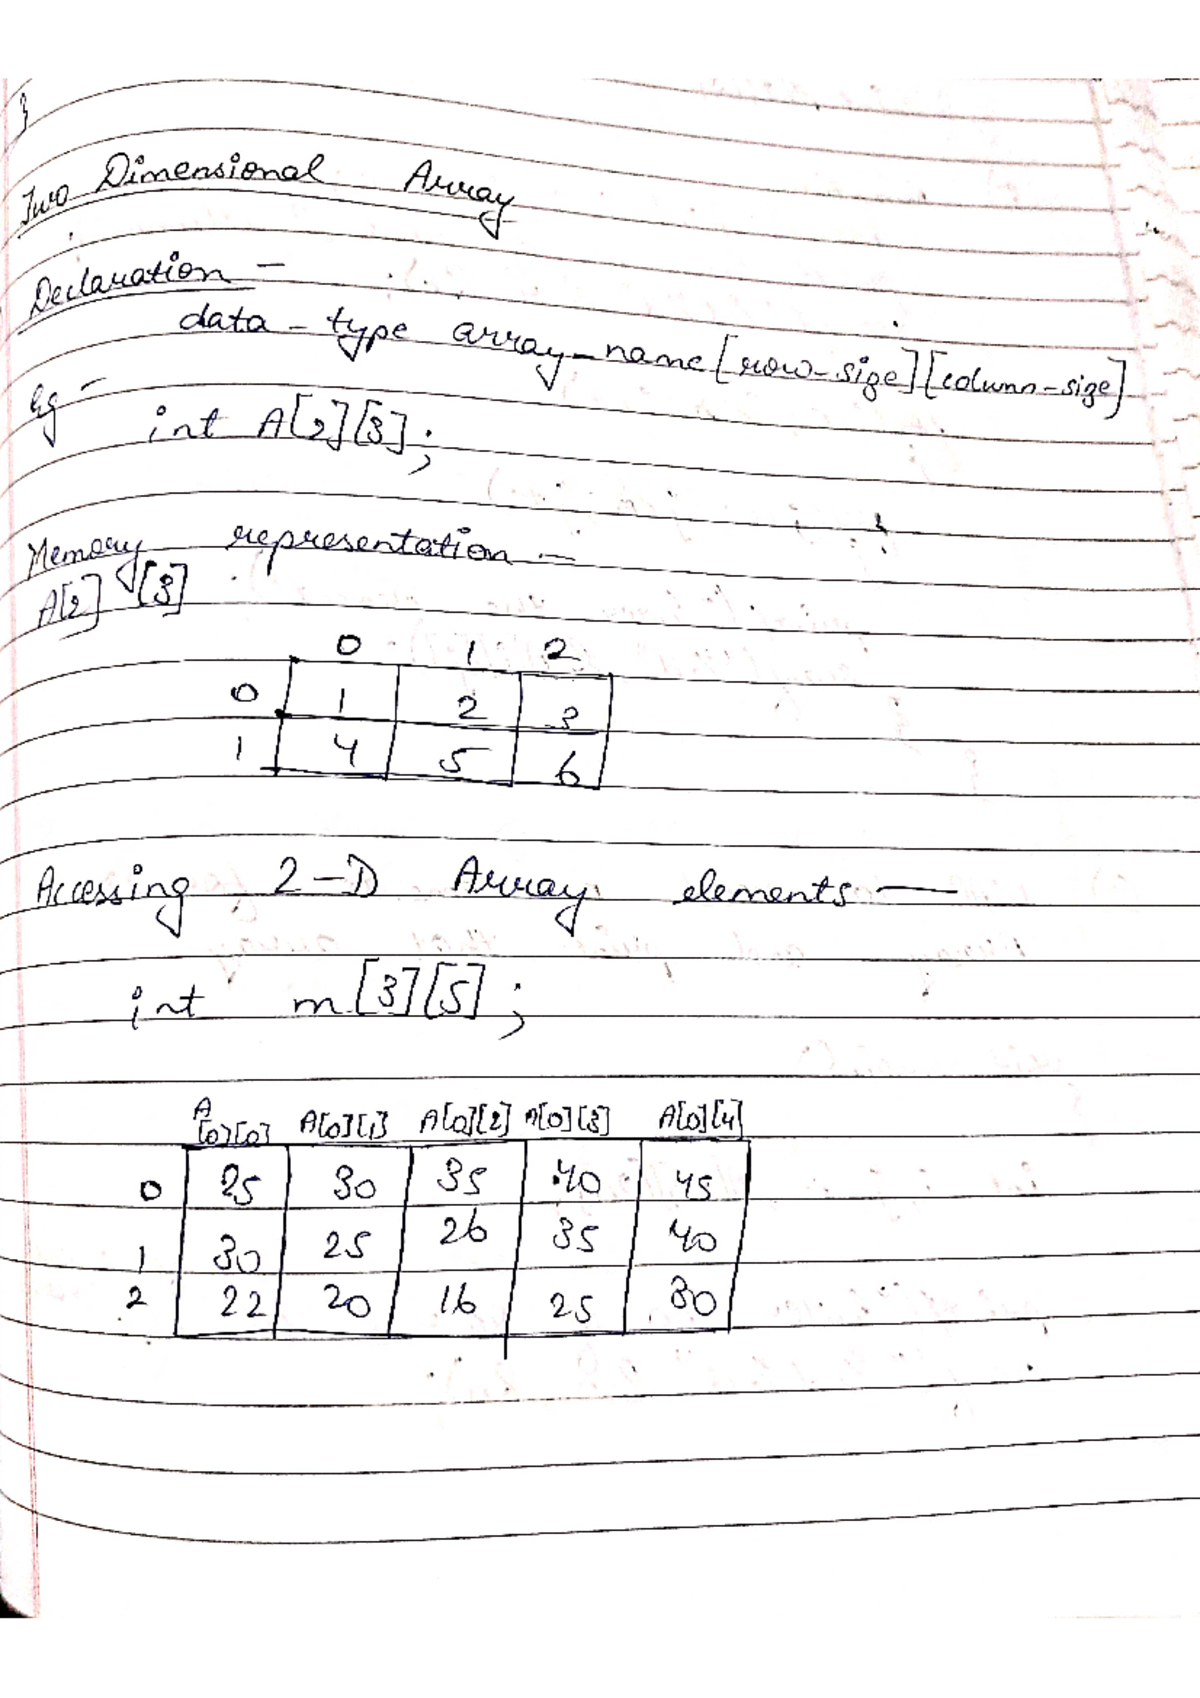 }
Two Dimensional Array
Declaration -
data-type array-name[row-size][column-size]
Eg -
int A[2][3];
Memory representation -
A[2] [3]
0 1 2
0 1 2 3
1 4 5 6
Accessing 2-D Array elements —
int m[3][5];
A
[0][0] A[0][1] A[0][2] A[0][3] A[0][4]
0 25 30 35 40 45
1 30 25 26 35 40
2 22 20 16 25 30